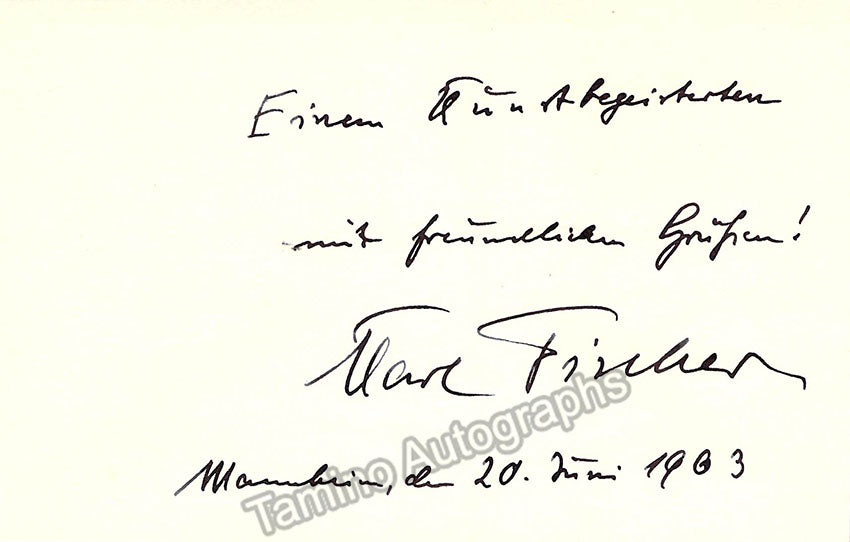 Einem Kunstbegeisterten
mit freundlichen Grüßen!
Karl Fischer
Mannheim, den 20. Juni 1963
Tamino Autographs